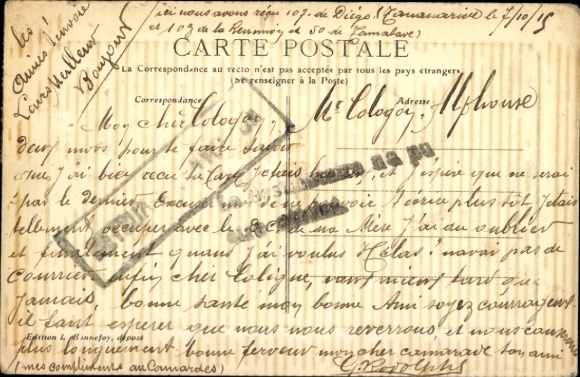 ici nous avons reçu 107. de Diégo (Tananarive le 7/10/15
et 107 de la Réunion et 50 de Tamatave)
les amies t'envoie
leurs Meilleur
Bonjour
CARTE POSTALE
La Correspondance au recto n'est pas acceptée par tous les pays étrangers
(Se renseigner à la Poste)
Correspondance
Adresse
Mr Cologon Alphonse
Mon cher Cologon,
deux mots pour te faire savoir
que J'ai bien accu ta Carte Je pais et J'espire que ne serai
pas le dernier Excuse moi de ne pouvoir t'écrire plus tôt J'etais
tellement occuper avec le de ma Mère J'ai du oublier
et finalement quand J'ai voulus Hélas! navai pas de
courrier enfin cher Cologue, vaux mieux tard que
Jamais, bonne sante mon bonne Ami soyez courrageux
il faut esperer que nous nous reverrons et nous causerons
Edition L. Bonnefoy, déposé
plus longuement bonne ferveur mon cher camarade ton ami
(mes compliments au Camarades) G. Rodolphe
RETOUR
na pu